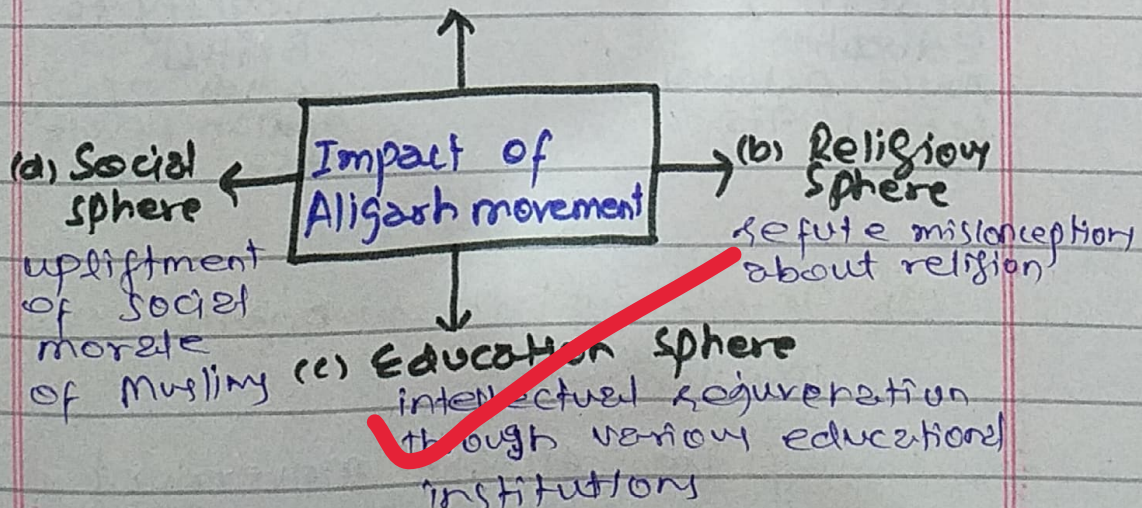 Impact of
Aligarh movement
(a) Social
sphere
upliftment
of social
morale
of Muslims
(b) Religious
sphere
refute misconception
about religion
(c) Education sphere
intellectual rejuvenation
through various educational
institutions